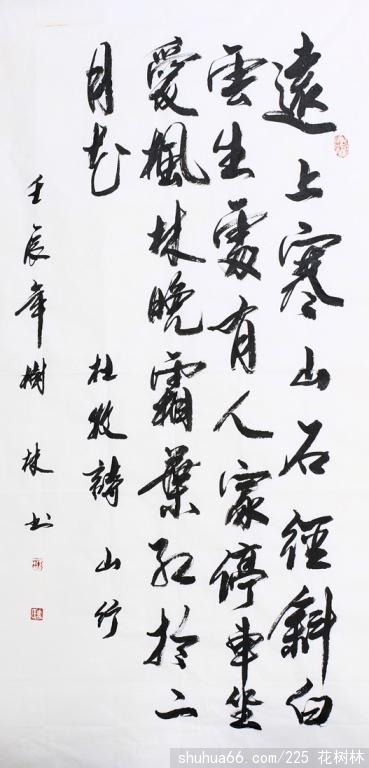 遠上寒山石徑斜白
雲生處有人家停車坐
愛楓林晚霜葉紅於二
月花 杜牧詩 山行
壬辰年樹林書
shuhua66.com/225 花树林